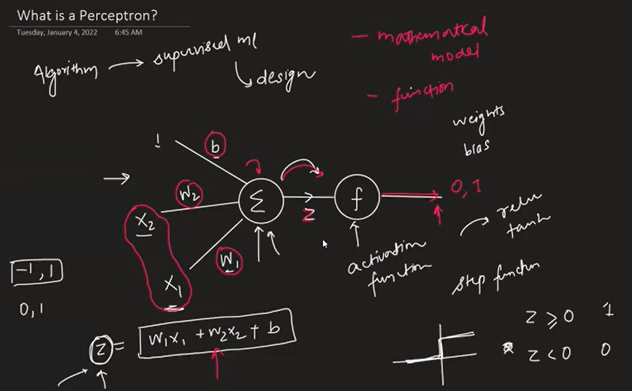 What is a Perceptron?
Tuesday, January 4, 2022 6:45 AM
Algorithm → supervised ml
design
- mathematical
model
- function
weights
bias
1
b
w2
x2
x1
w1
Σ
z
f
0, 1
activation
function
relu
tanh
step function
-1, 1
0, 1
z = w1x1 + w2x2 + b
z ≥ 0 1
z < 0 0